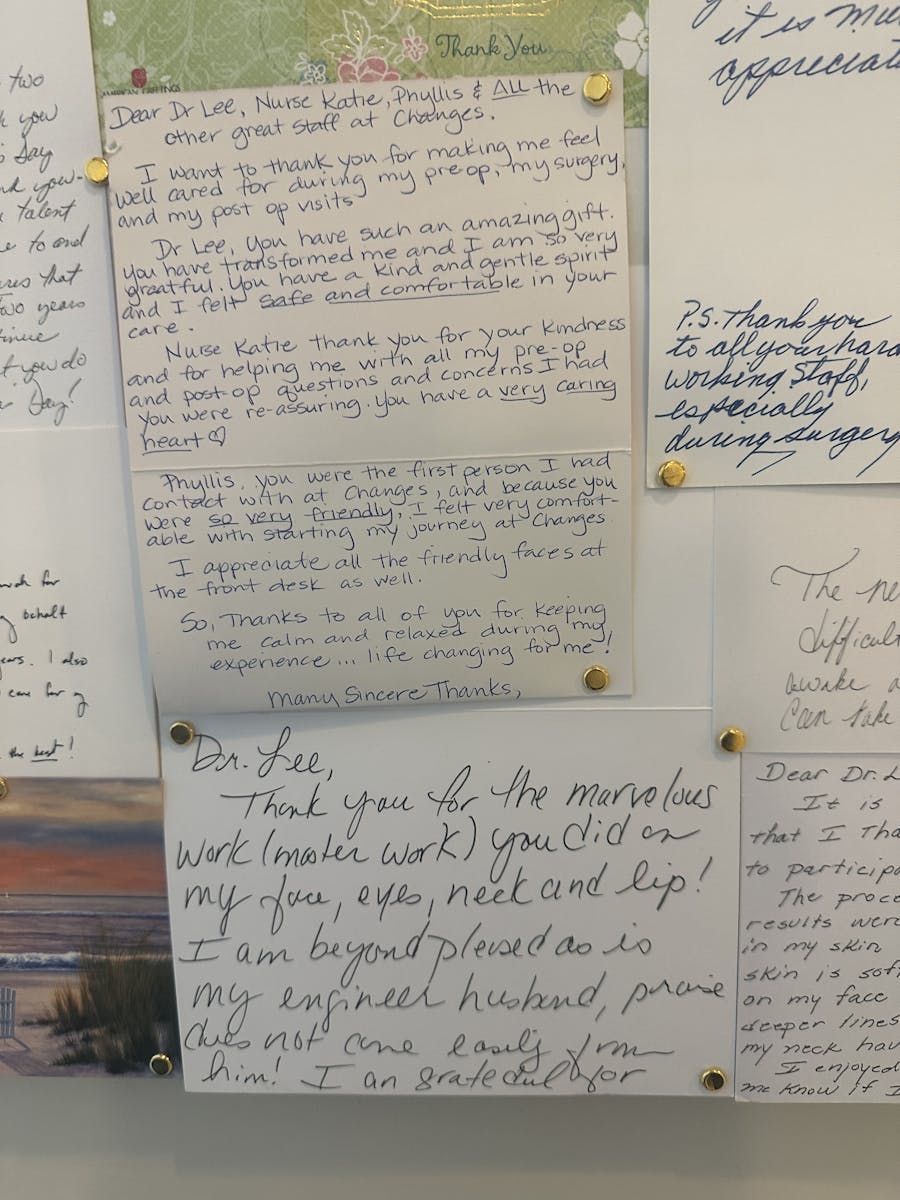 two
you
Day
and your
talent
to and
that
two years
you do
Day!
for
behalf
years. I also
care for
the best!
Thank You
AMERICAN GREETINGS
Dear Dr Lee, Nurse Katie, Phyllis & ALL the
other great staff at Changes.
I want to thank you for making me feel
well cared for during my pre-op, my surgery,
and my post op visits
Dr Lee, you have such an amazing gift.
you have transformed me and I am so very
greatful. You have a kind and gentle spirit
and I felt safe and comfortable in your
care.
Nurse Katie thank you for your kindness
and for helping me with all my pre-op
and post-op questions and concerns I had
you were re-assuring. You have a very caring
heart ♡
Phyllis, you were the first person I had
contact with at Changes, and because you
were so very friendly, I felt very comfort-
able with starting my journey at Changes.
I appreciate all the friendly faces at
the front desk as well.
So, Thanks to all of you for keeping
me calm and relaxed during my
experience... life changing for me!
Many Sincere Thanks,
Dr. Lee,
Thank you for the marvelous
work (master work) you did on
my face, eyes, neck and lip!
I am beyond pleased as is
my engineer husband, praise
does not come easily from
him! I am grateful for
it is
appreciat
P.S. Thank you
to all your hard
working Staff,
especially
during surgery
The ne
difficult
awake a
Can take
Dear Dr. L
It is
that I Tha
to participa
The proce
results were
in my skin
skin is soft
on my face
deeper lines
my neck hav
I enjoyed
me know if I